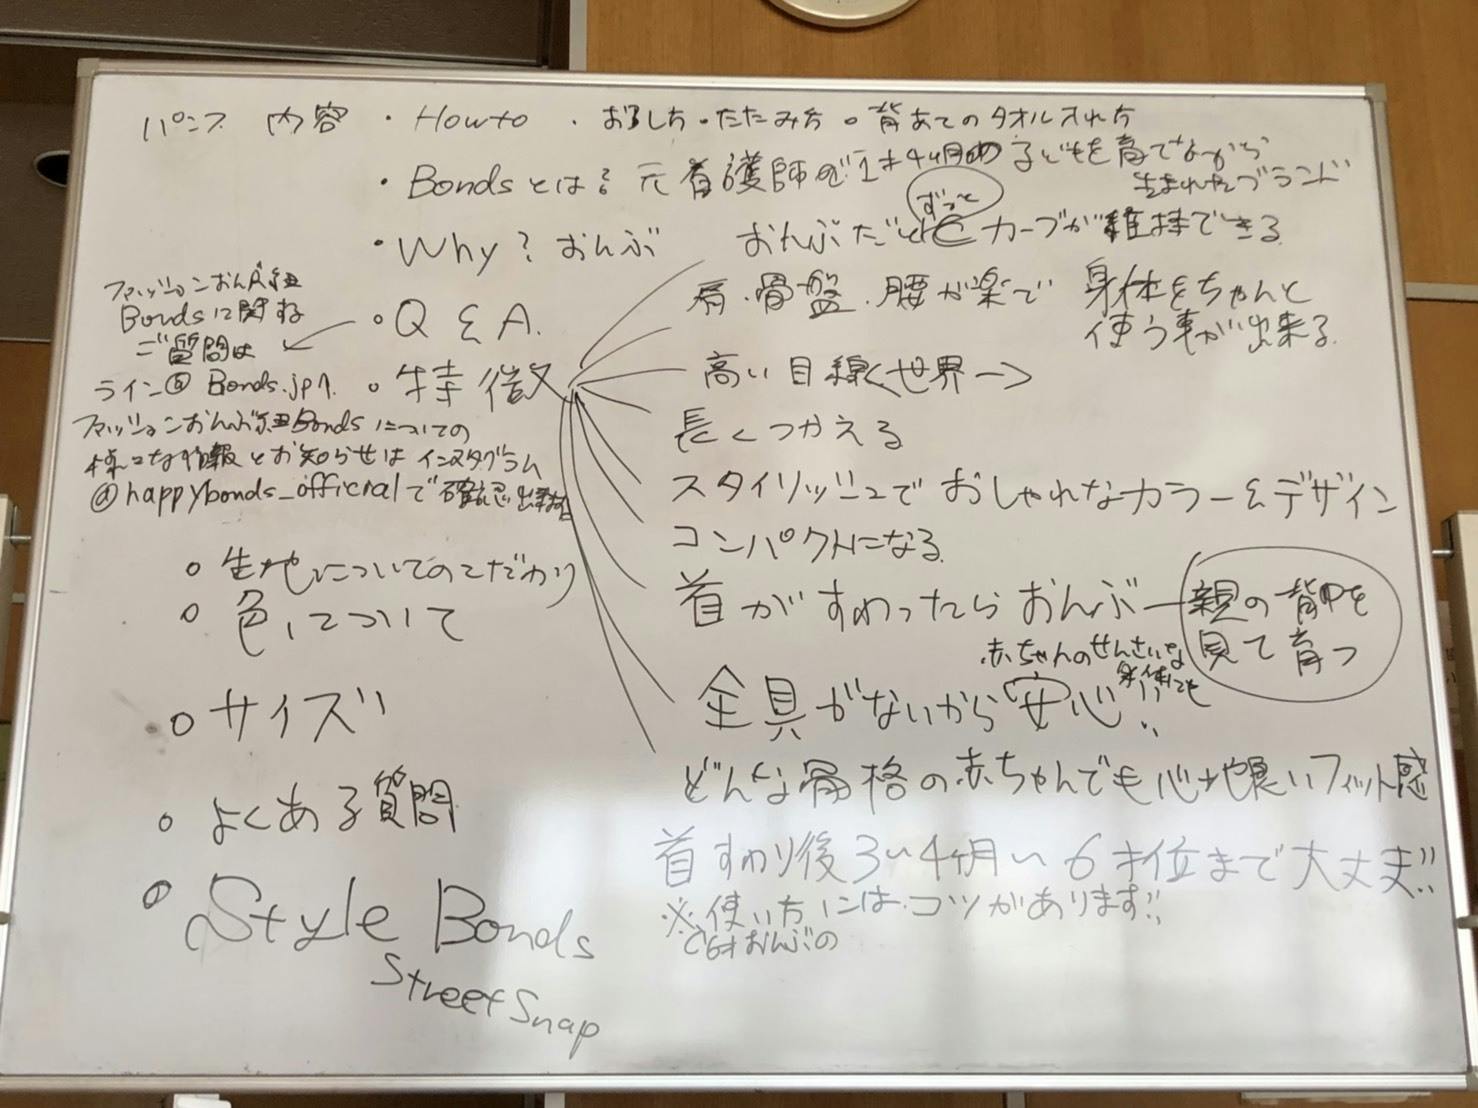 パンフ 内容 ・Howto ・おろし方・たたみ方。背あてのタオル入れ方
・Bondsとは? 元看護師が1才4ヶ月の子どもを育てながら
生まれたブランド
・Why? おんぶ
おんぶだとCカーブが維持できる
ずっと
ファッションおんぶ紐
Bondsに関する
ご質問は
ライン@ Bonds.jpへ
・Q&A.
・特徴
肩・骨盤・腰が楽で 身体をちゃんと
使う事が出来る
高い目線<世界→
長くつかえる
スタイリッシュでおしゃれなカラー&デザイン
コンパクトになる
首がすわったらおんぶー親の背中を
見て育つ
赤ちゃんのせんさいな
身体にも
金具がないから安心!!
どんな骨格の赤ちゃんでも心地良いフィット感
首すわり後3〜4ヶ月〜6才位まで大丈夫!!
※使い方にはコツがあります!!
6才おんぶの
ファッションおんぶ紐Bondsについての
様々な情報とお知らせはインスタグラム
@happybonds_officialで確認出来ます
○生地についてのこだわり
○色について
○サイズ
○よくある質問
○Style Bonds
Street Snap